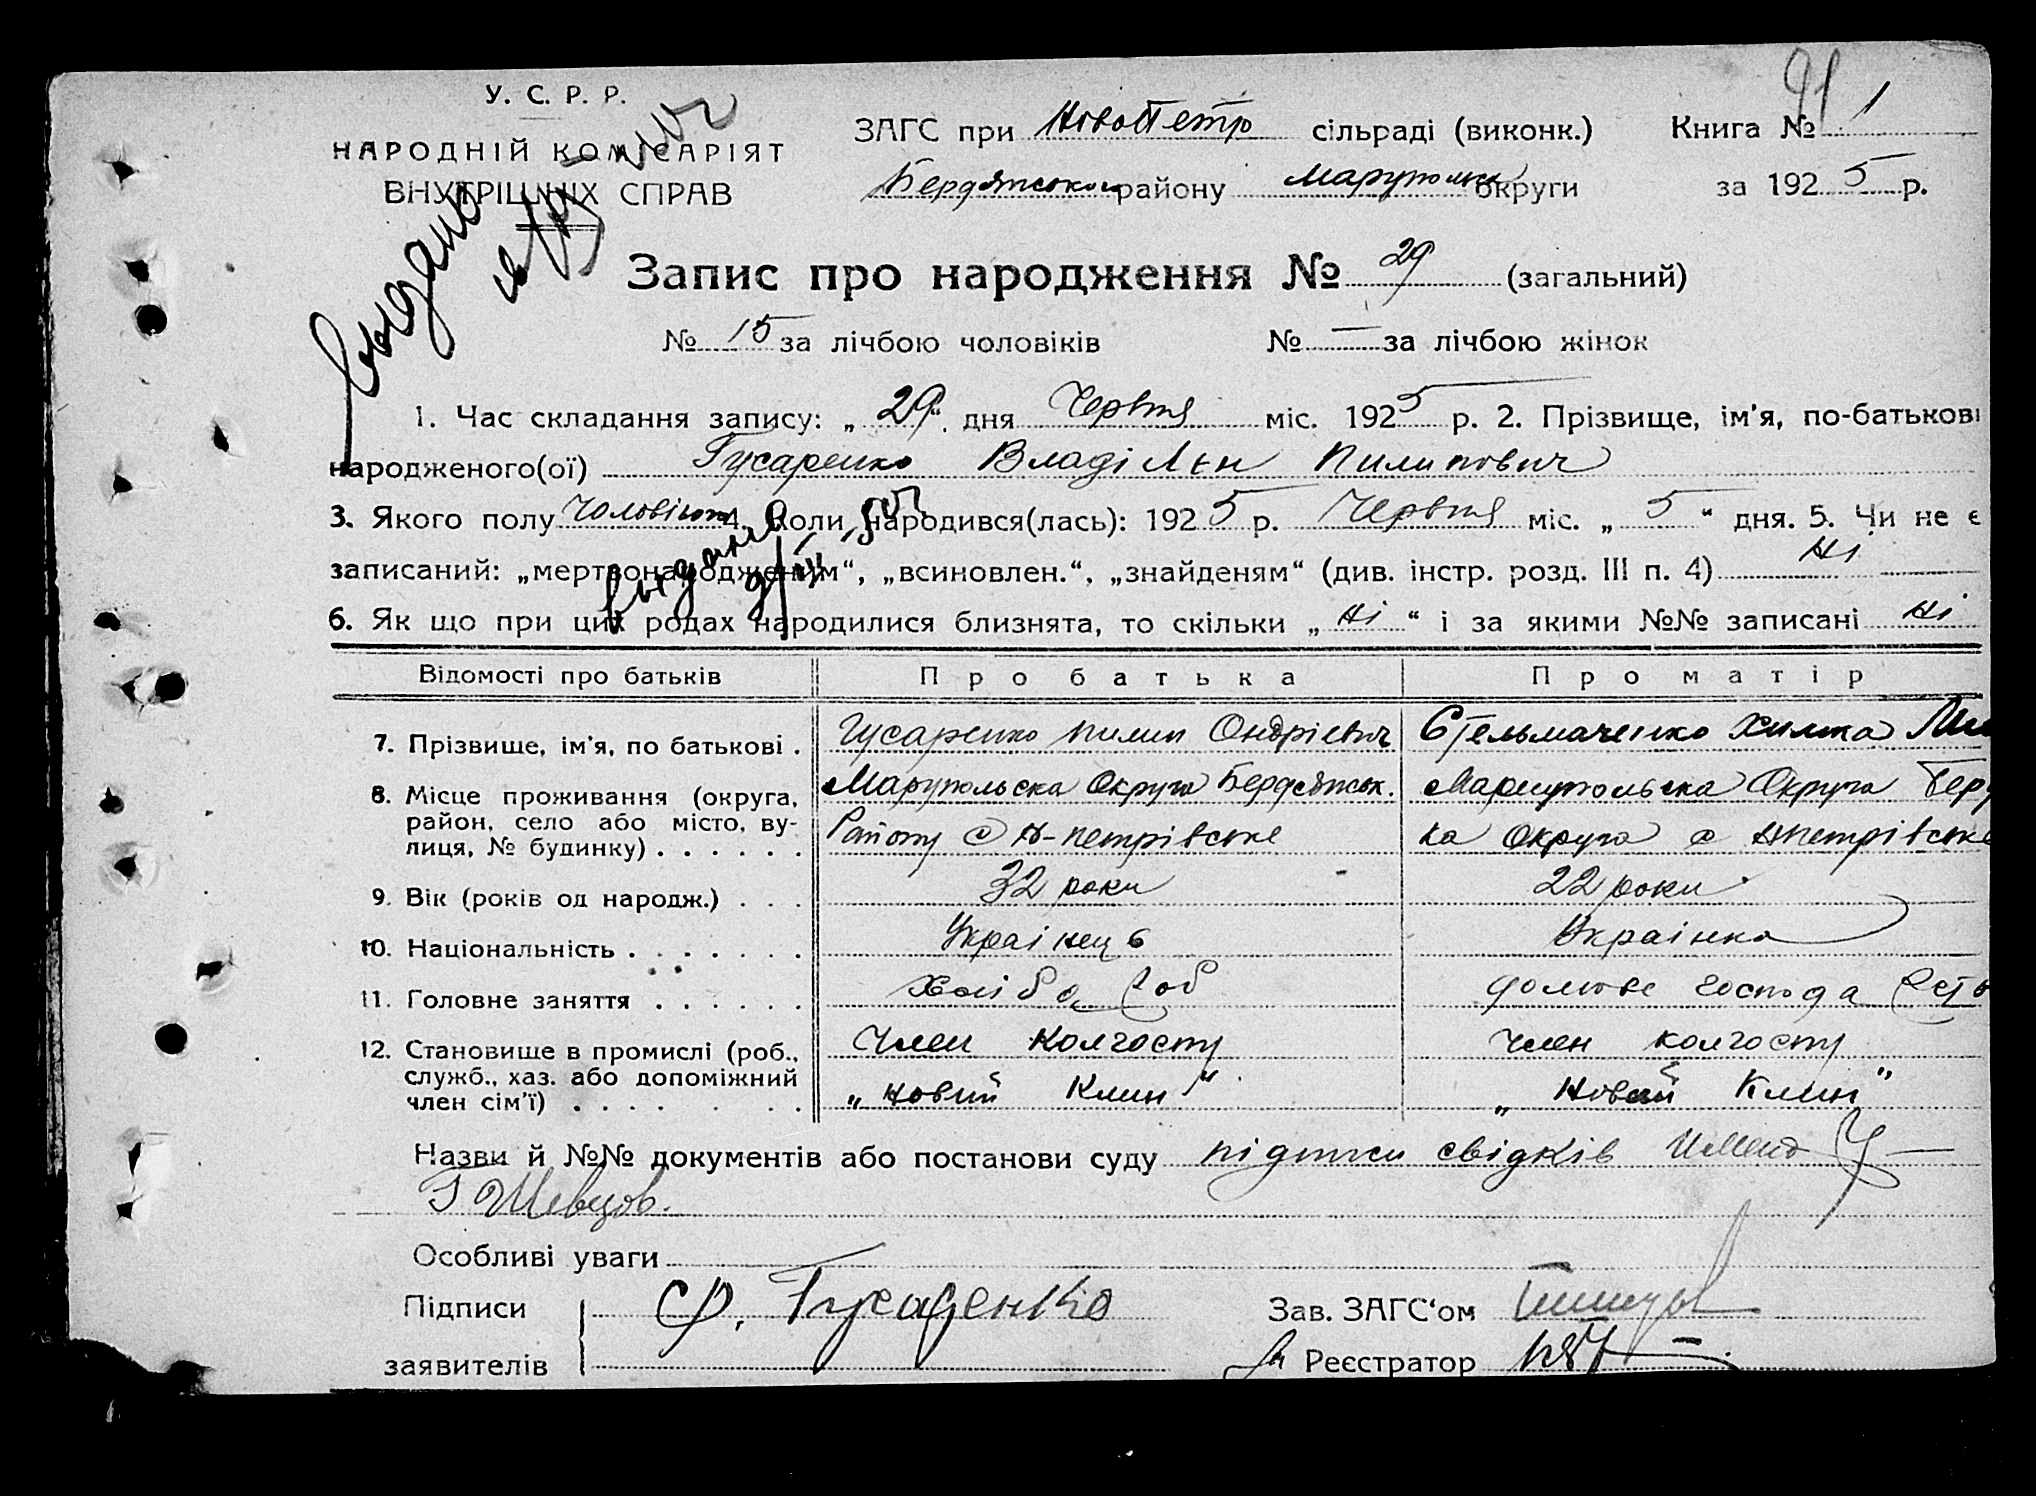 91
У. С. Р. Р.
НАРОДНІЙ КОМІСАРІЯТ
ВНУТРІШНІХ СПРАВ
ЗАГС при НовоПетр сільраді (виконк.) Книга № 1
Бердянського району Маруполск округи за 1925 р.
Выдано
Запис про народження № 29 (загальний)
№ 15 за лічбою чоловіків № — за лічбою жінок
1. Час складання запису: „29“ дня Червня міс. 1925 р. 2. Прізвище, ім'я, по-батькові
народженого(ої) Гусаренко Владілєн Пилипович
3. Якого полу чоловічого 4. Коли народився(лась): 1925 р. Червня міс. „5“ дня. 5. Чи не є
записаний: „мертвонародженим“, „всиновлен.“, „знайденям“ (див. інстр. розд. III п. 4) Ні
Выдано
6. Як що при цих родах народилися близнята, то скільки „Ні“ і за якими №№ записані Ні
Відомості про батьків Про батька Про матір
7. Прізвище, ім'я, по батькові . Гусаренко Пилип Ондрієвич Стельмаченко Химка
8. Місце проживання (округа, район, село або місто, вулиця, № будинку) . . . . . .
Марупольска Округа Бердянськ. Району с Н-петрівське
Мариупольска Округа Бер ка Округа с Нпетрівське
9. Вік (років од народж.) . . . 32 роки 22 роки
10. Національність . . . . . . . Украінець Украінка
11. Головне заняття . . . . . . Хліба роб домове господа
12. Становище в промислі (роб., служб., хаз. або допоміжний член сім'ї) . . . . . . .
Член колгоспу „Новий Клин“
член колгоспу „Новий Клин“
Назви й №№ документів або постанови суду підписи свідків
Г Шевцов.
Особливі уваги
Підписи заявителів Ф. Гусаренко
Зав. ЗАГС'ом
Реєстратор